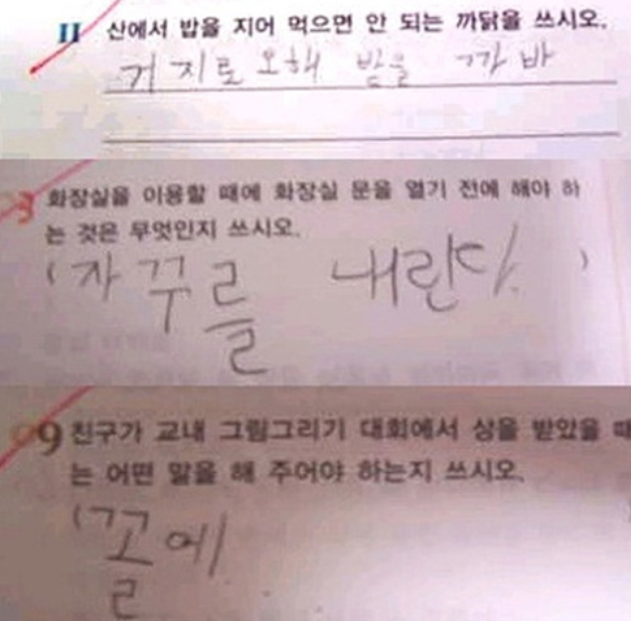 11 산에서 밥을 지어 먹으면 안 되는 까닭을 쓰시오.
거지로 오해 받을 까바
3 화장실을 이용할 때에 화장실 문을 열기 전에 해야 하
는 것은 무엇인지 쓰시오.
( 자꾸를 내린다. )
9 친구가 교내 그림그리기 대회에서 상을 받았을 때
는 어떤 말을 해 주어야 하는지 쓰시오.
( 꼴에